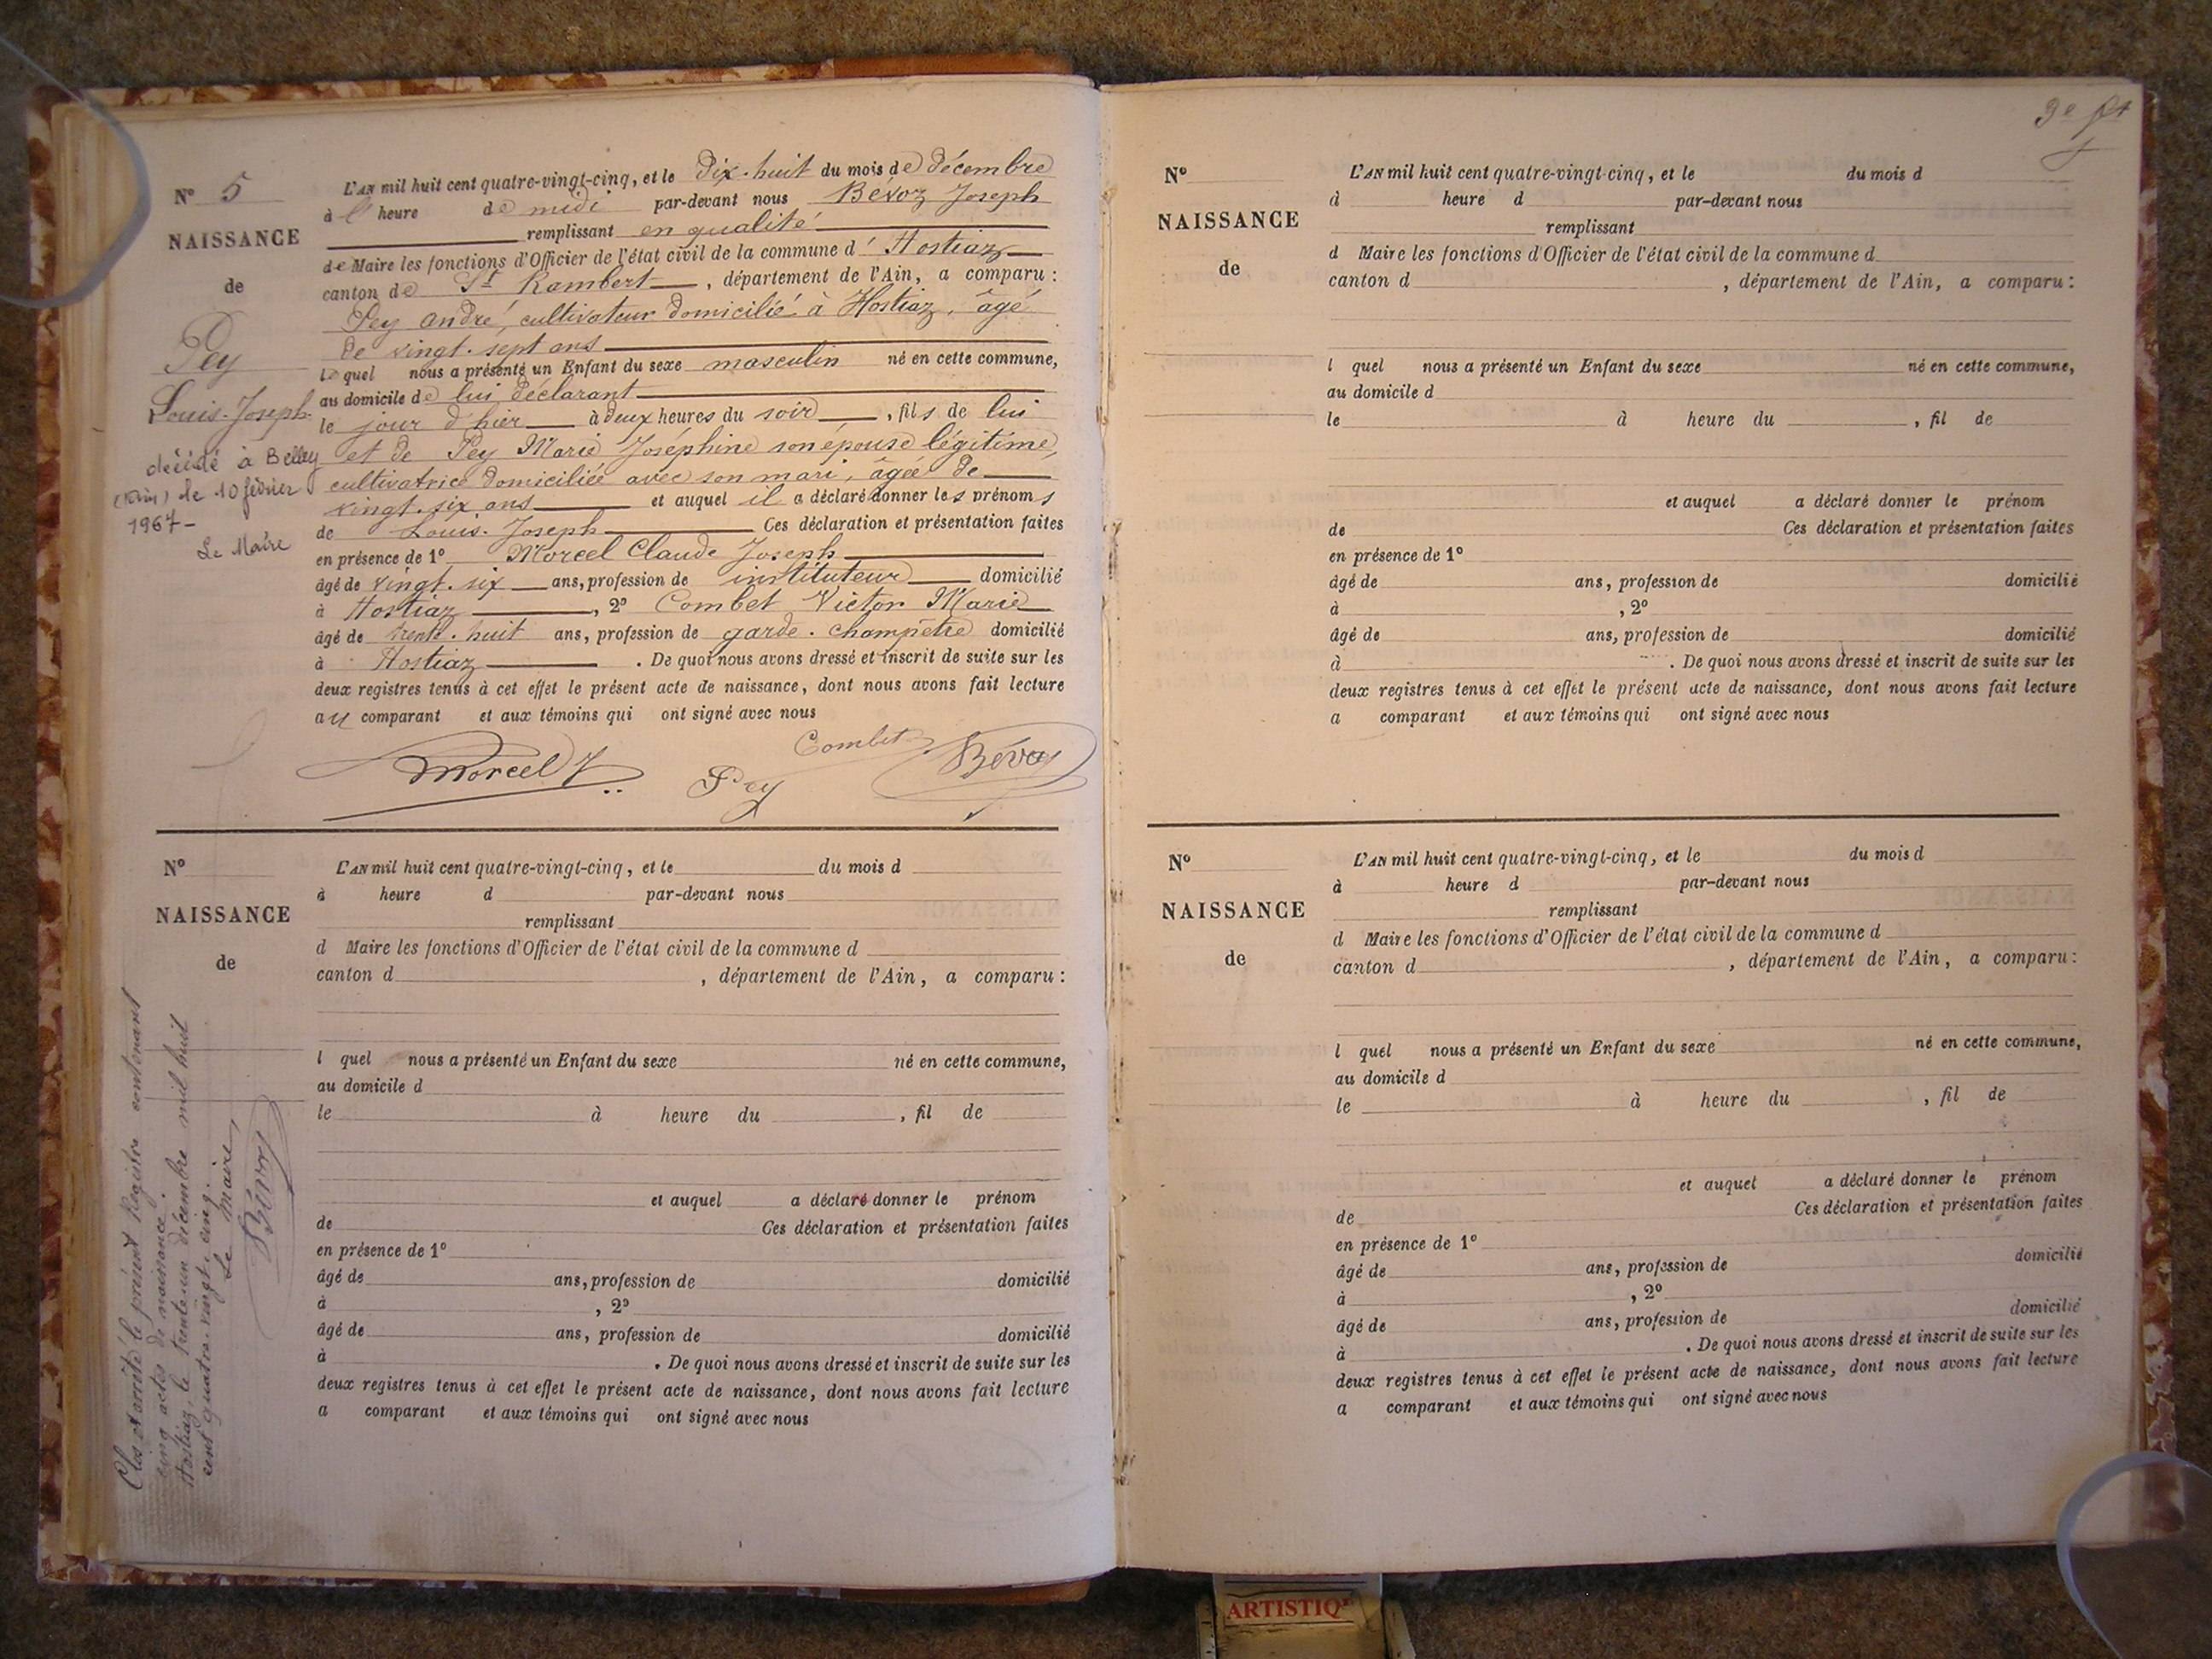 N° 5
NAISSANCE
de
Pey
Louis-Joseph
décédé à Belley
(Ain) le 10 février
1967 -
Le Maire
L'AN mil huit cent quatre-vingt-cinq, et le Dix-huit du mois de décembre
à l' heure de midi par-devant nous Bevoz Joseph
remplissant en qualité
de Maire les fonctions d'Officier de l'état civil de la commune d' Hostiaz
canton de St Rambert, département de l'Ain, a comparu :
Pey André, cultivateur domicilié à Hostiaz, âgé
de vingt-sept ans
le quel nous a présenté un Enfant du sexe masculin né en cette commune,
au domicile de lui déclarant
le jour d'hier à deux heures du soir, fils de lui
et de Pey Marie Joséphine son épouse légitime,
cultivatrice domiciliée avec son mari, âgée de
vingt-six ans et auquel il a déclaré donner les prénoms
de Louis-Joseph Ces déclaration et présentation faites
en présence de 1° Morcel Claude Joseph
âgé de vingt-six ans, profession de instituteur domicilié
à Hostiaz, 2° Combet Victor Marie
âgé de trente-huit ans, profession de garde-champêtre domicilié
à Hostiaz. De quoi nous avons dressé et inscrit de suite sur les
deux registres tenus à cet effet le présent acte de naissance, dont nous avons fait lecture
au comparant et aux témoins qui ont signé avec nous
Morcel J Pey Combet Bévoz
N°
NAISSANCE
de
L'AN mil huit cent quatre-vingt-cinq, et le du mois d
à heure d par-devant nous
remplissant
d Maire les fonctions d'Officier de l'état civil de la commune d
canton d , département de l'Ain, a comparu :
l quel nous a présenté un Enfant du sexe né en cette commune,
au domicile d
le à heure du , fil de
et auquel a déclaré donner le prénom
de Ces déclaration et présentation faites
en présence de 1°
âgé de ans, profession de domicilié
à , 2°
âgé de ans, profession de domicilié
à . De quoi nous avons dressé et inscrit de suite sur les
deux registres tenus à cet effet le présent acte de naissance, dont nous avons fait lecture
a comparant et aux témoins qui ont signé avec nous
Clos et arrêté le présent Registre contenant
cinq actes de naissance.
Hostiaz, le trente-un décembre mil huit
cent quatre-vingt-cinq.
Le Maire,
Bévoz
N°
NAISSANCE
de
L'AN mil huit cent quatre-vingt-cinq, et le du mois d
à heure d par-devant nous
remplissant
d Maire les fonctions d'Officier de l'état civil de la commune d
canton d , département de l'Ain, a comparu :
l quel nous a présenté un Enfant du sexe né en cette commune,
au domicile d
le à heure du , fil de
et auquel a déclaré donner le prénom
de Ces déclaration et présentation faites
en présence de 1°
âgé de ans, profession de domicilié
à , 2°
âgé de ans, profession de domicilié
à . De quoi nous avons dressé et inscrit de suite sur les
deux registres tenus à cet effet le présent acte de naissance, dont nous avons fait lecture
a comparant et aux témoins qui ont signé avec nous
N°
NAISSANCE
de
L'AN mil huit cent quatre-vingt-cinq, et le du mois d
à heure d par-devant nous
remplissant
d Maire les fonctions d'Officier de l'état civil de la commune d
canton d , département de l'Ain, a comparu :
l quel nous a présenté un Enfant du sexe né en cette commune,
au domicile d
le à heure du , fil de
et auquel a déclaré donner le prénom
de Ces déclaration et présentation faites
en présence de 1°
âgé de ans, profession de domicilié
à , 2°
âgé de ans, profession de domicilié
à . De quoi nous avons dressé et inscrit de suite sur les
deux registres tenus à cet effet le présent acte de naissance, dont nous avons fait lecture
a comparant et aux témoins qui ont signé avec nous
ARTISTIQ